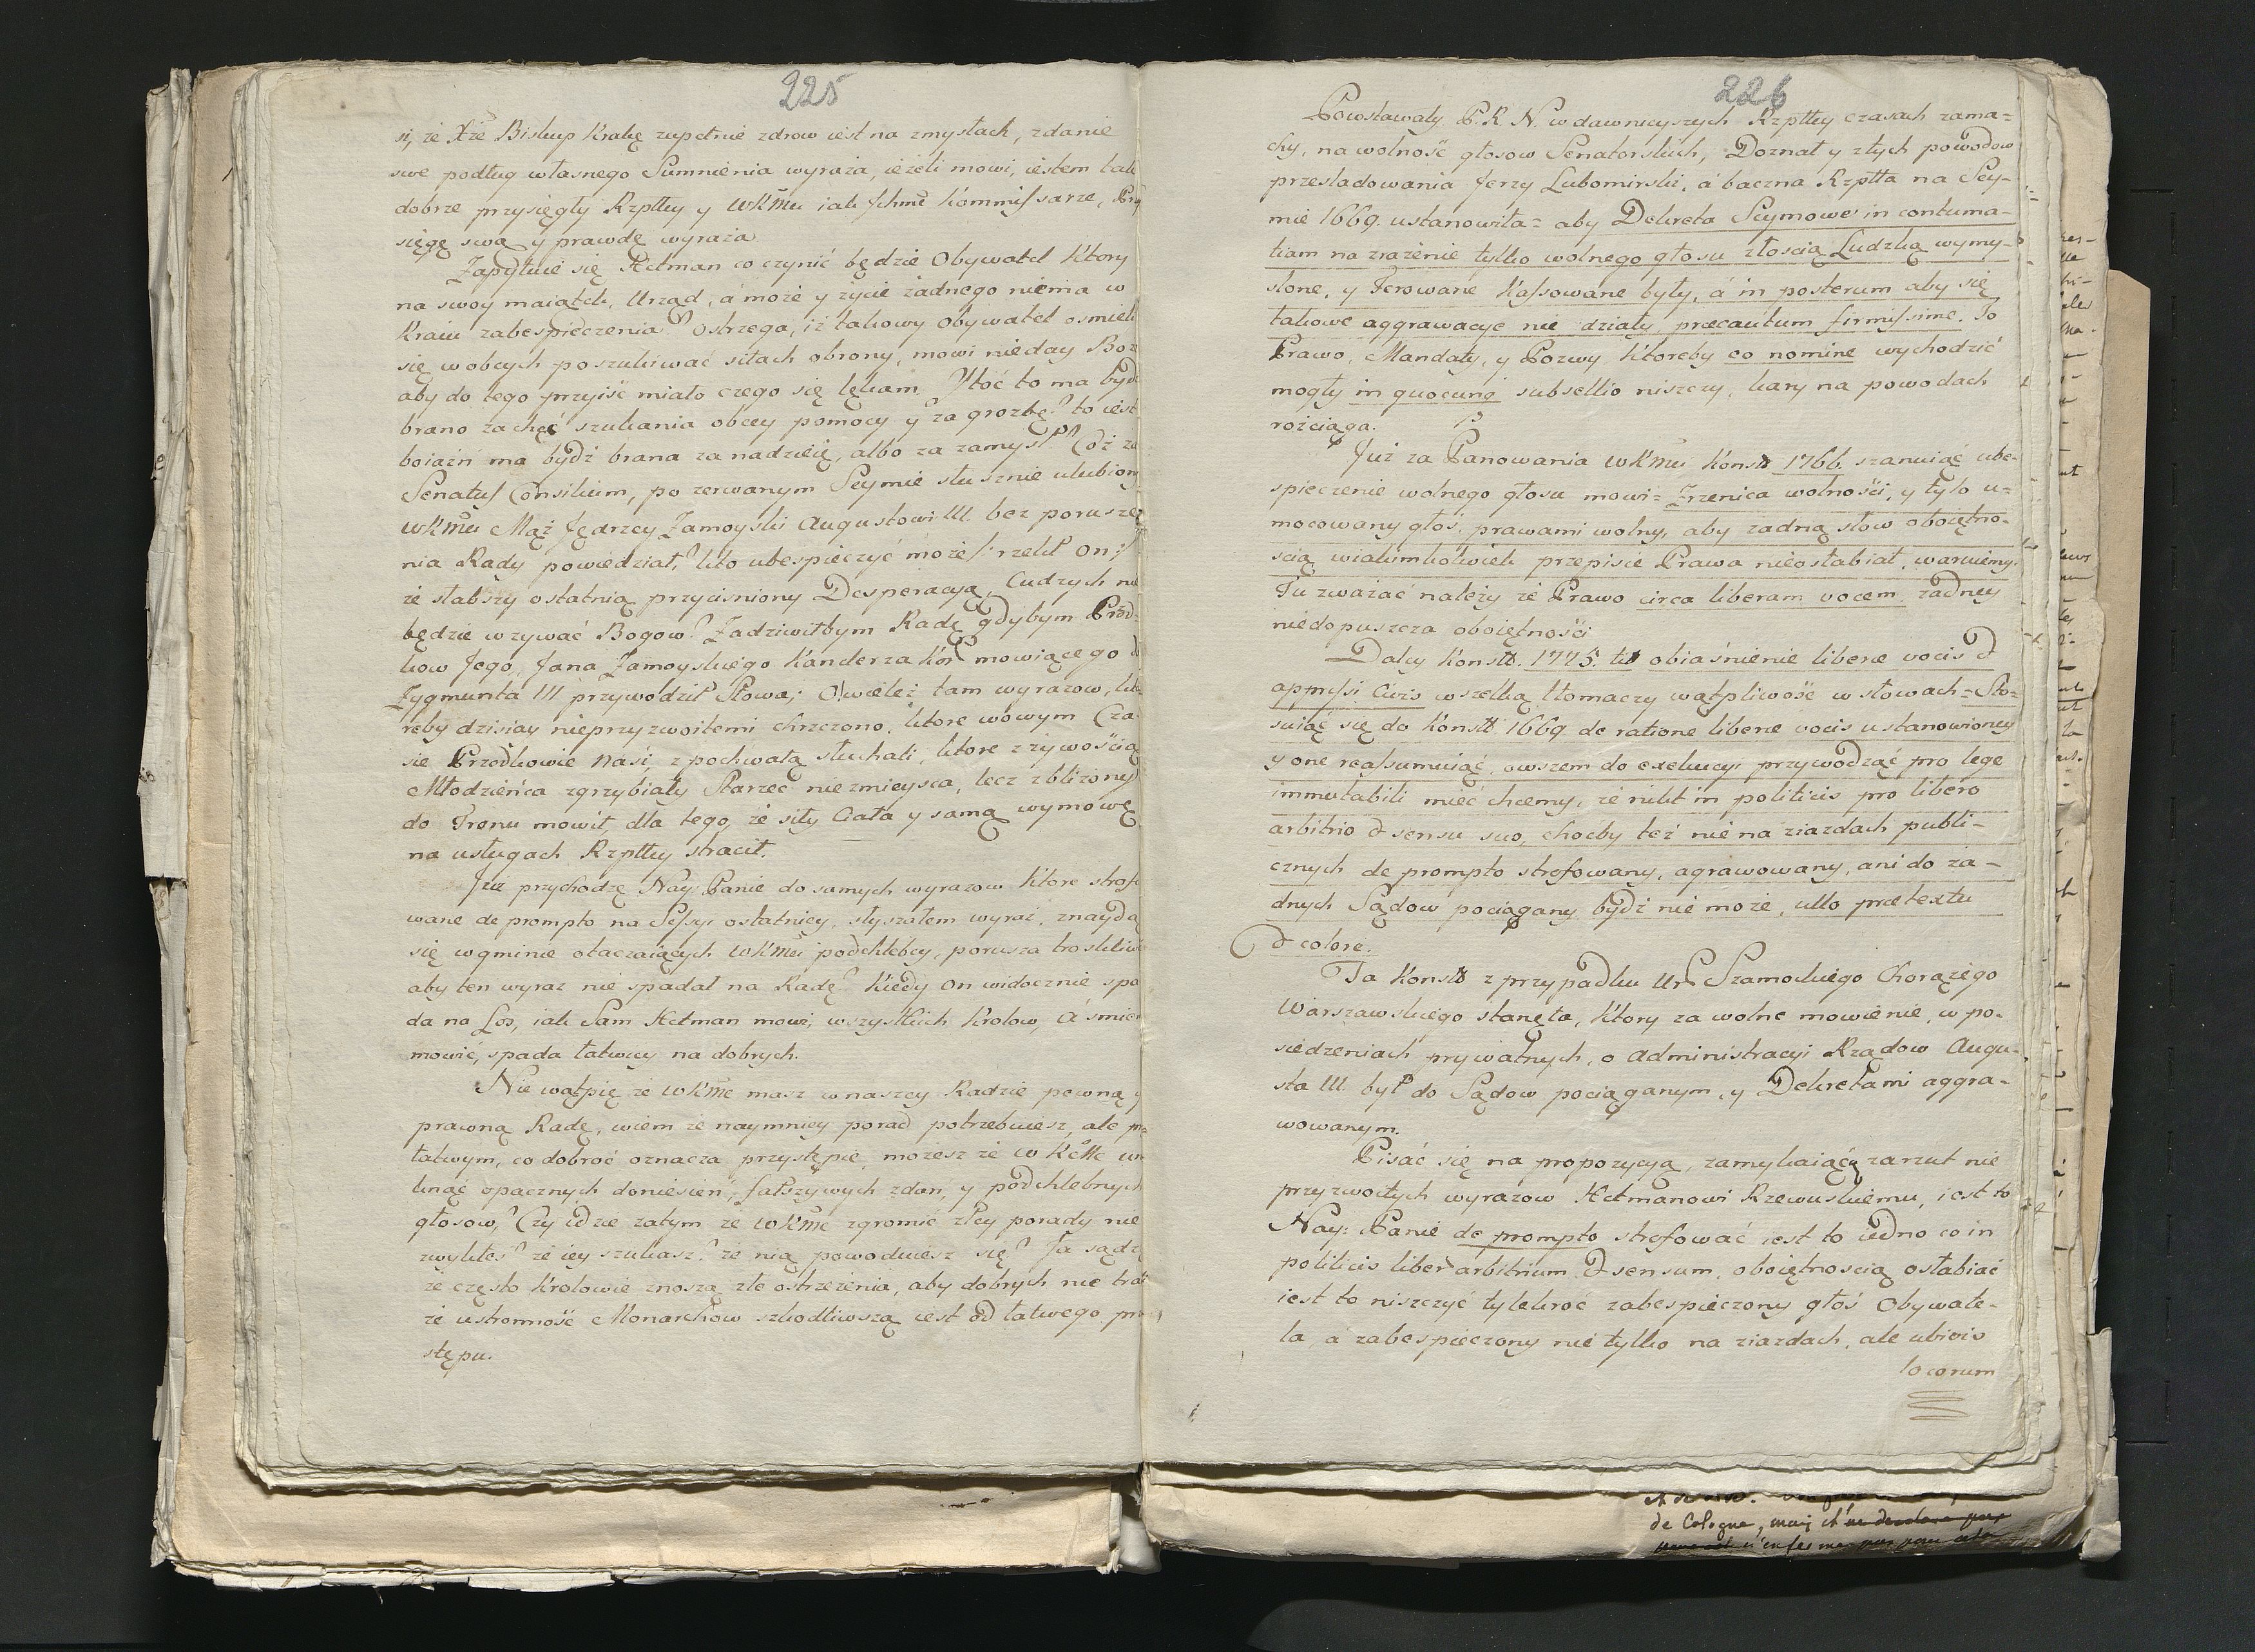 225
si, że Xże Biskup Krakę zupełnie zdrow iest na zmysłach, zdanie
swe podług własnego Sumnienia wyraża, ieżeli mowi, iestem tak
dobrze przysięgły Rzpltey y WKMci iak Jchmć Kommissarze, Przy
sięgę swą y prawdę wyraża
Zapytuie się Hetman co czynić będzie Obywatel Ktory
na swoy maiątek, Urząd, á może y życie żadnego niema w
Kraiu zabespieczenia? Ostrzega, iż takowy Obywatel osmieli
się w obcych poszukiwać siłach obrony, mowi nieday Boże
aby do tego przyiść miało czego się lękam. Ktoć to ma bydź
brano za chęć szukania obcey pomocy y za grozbę? to iest
boiaźń ma bydź brana za nadzieię, albo za zamysł? Coż za
Senatus Consilium, po zerwanym Seymie słusznie ulubiony
WKMci Mąż Jędrzey Zamoyski Augustowi III. bez porusze
nia Rady powiedział, kto ubespieczyć może /: rzekł on :/
że słabszy ostatnią przyciśniony Desperacyą, Cudzych nie
będzie wzywać Bogow? Zadziwiłbym Radę gdybym Przod-
kow Jego, Jana Zamoyskiego Kanclerza Kor mowiącego do
Zygmunta III przywodził Słowa; O! wieleż tam wyrazow, kto
reby dzisiay nieprzyzwoitemi chrzczono, ktore wowym Cza
sie Przodkowie nasi, z pochwałą słuchali, ktore z żywością
Młodzieńca zgrzybiały Starzec nie zmieysca, lecz zbliżony
do Tronu mowił, dla tego, że siły Ciała y samą wymowę
na usługach Rzpltey stracił.
Już przychodzę Nay: Panie do samych wyrazow Ktore strofo
wane de prompto na Sessyi ostatniey, słyszałem wyraz, znaydą
się w gminie otaczaiących WKMci podchlebcy, porusza troskliwie
aby ten wyraz nie spadał na Radę? Kiedy on widocznie spa
da na Los, iak Sam Hetman mowi, wszystkich Krolow, á śmiem
mowić, spada łatwiey na dobrych.
Nie wątpię że WKMć masz w naszey Radzie pewną y
prawną Radę, wiem że naymniey porad potrzebuiesz, ale przy
łatwym, co dobroć oznacza przystępie, możesz że WKMć un
knąć opacznych doniesień, fałszywych zdań, y podchlebnych
głosow? Czy idzie zatym że WKMć zgromić złey porady nie
zwykłeś? że iey szukasz? że nią powoduiesz się? Ja sądzę
że często Krolowie znoszą złe ostrzeżenia, aby dobrych nie trac
że ustronność Monarchow szkodliwszą iest od łatwego przy
stępu.
226
Powstawały P. R. N. w dawnieyszych Rzpltey czasach zama=
chy, na wolność głosow Senatorskich, Doznał y złych powodow
przesladowania Jerzy Lubomirski, á baczna Rzplta na Sey-
mie 1669. ustanowiła = aby Dekreta Seymowe in contuma-
tiam na zrażenie tylko wolnego głosu złością Ludzką wymy-
slone, y ferowane Kassowane były, á in posterum aby się
takowe aggrawacye nie działy, præcautum firmissime. To
Prawo, Mandaty, y Pozwy ktoreby eo nomine wychodzić
mogły in quocunq subsellio niszczy, kary na powodach
rozciąga.
Już za Panowania WKMci Konstt 1766. szanuiąc ube-
spieczenie wolnego głosu mowi = Zrzenica wolności, y tylo u=
mocowany głos, prawami wolny, aby żadną słow oboiętno-
scią wiakimkolwiek przepisie Prawa nieosłabiał, waruiemy.
Tu zważać należy że Prawo circa liberam vocem żadney
niedopuszcza oboiętności
Daley Konstt. 1775. tit obiaśnienie liberæ vocis &
appressi Civis wszelką tłomaczy wątpliwość w słowach = Sto-
suiąc się do Konstt 1669. de ratione liberæ vocis ustanowioney
y one reassumuiąć, owszem do exekucyi przywodząc pro lege
immutabili mieć chcemy, że nikt in politicis pro libero
arbitrio & sensu suo, choćby też nie na ziazdach publi-
cznych de prompto strofowany, agrawowany, ani do ża-
dnych Sądow pociągany bydź nie może, ullo prætextu
& colore.
Ta Konstt z przypadku Ur Szamockiego Chorążego
Warszawskiego stanęła, Ktory za wolne mowienie, w po-
siedzeniach prywatnych, o Administracyi Rządow Augu-
sta III. był do Sądow pociąganym, y Dekretami aggra-
wowanym.
Pisać się na propozycyą, zamykaiącą zarzut nie
przyzwoitych wyrazow Hetmanowi Rzewuskiemu, iest to
Nay: Panie de prompto strofować iest to iedno co in
politicis liberr arbitrium & sensum, oboiętnoscią osłabiać
iest to niszczyć tylekroć zabespieczony głos Obywate-
la á zabespieczony nie tylko na ziazdach, ale ubivis
locorum
de Cologne, mais